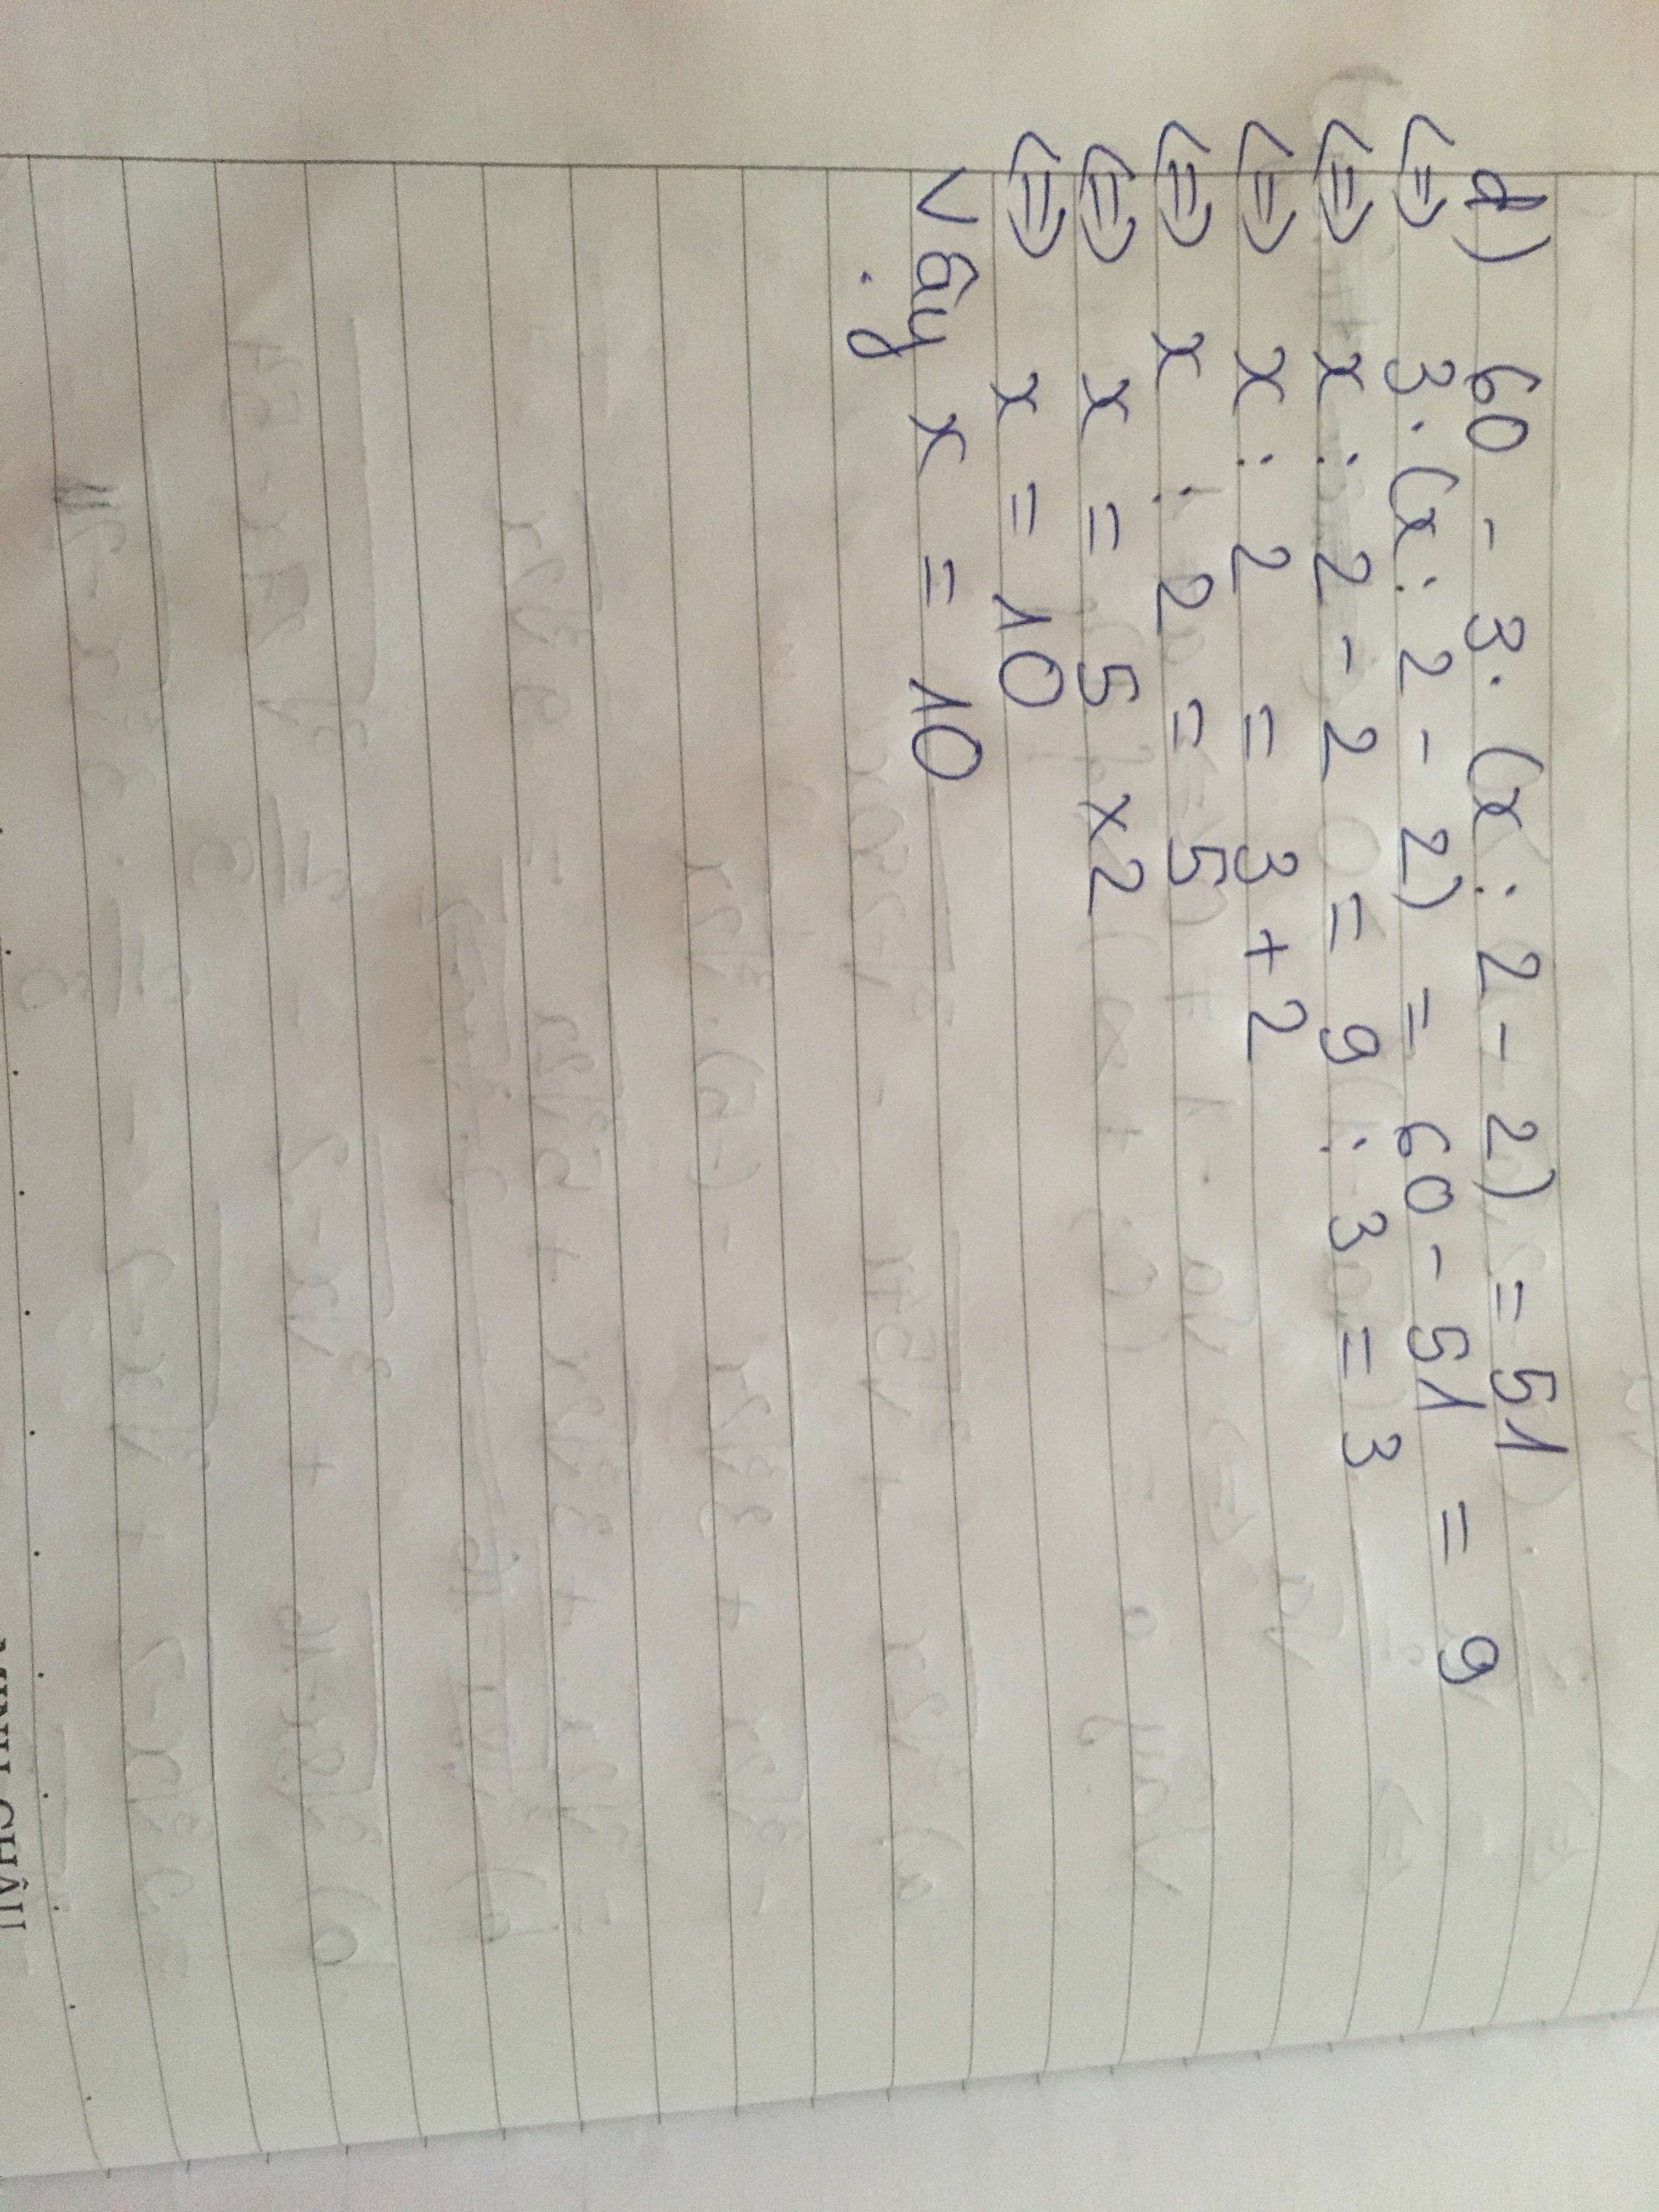 d) 60 - 3. (x : 2 - 2) = 51
<=> 3. (x : 2 - 2) = 60 - 51 = 9
<=> x : 2 - 2 = 9 : 3 = 3
<=> x : 2 = 3 + 2
<=> x : 2 = 5
<=> x = 5 x 2
<=> x = 10
Vậy x = 10
MINH CHÂU